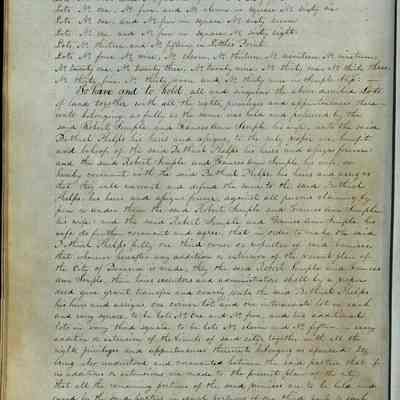 Lots No. one, No. five and No. eleven in square No. sixty six.
Lots No. one, and No. five in square No. sixty seven
Lots No. one and No. five in square No. sixty eight.
Lots No. thirteen and No. fifteen in
Lots No. four, No. nine, No. eleven, No. thirteen, No. seventeen, No. nineteen,
No. twenty one, No. twenty three, No. twenty nine, No. thirty one, No. thirty three
No. thirty five, No. thirty seven, and No. thirty nine in Semple
To have and to hold, all and singular the above described Lots
of land together with all the rights, privileges and appurtenances there-
unto belonging, as fully as the same was held and possessed by the
said Robert Semple and Frances Ann Semple his wife, unto the said
Bethuel Phelps his heirs and assigns, to the only proper use, benefit
and behoof of the said Bethuel Phelps his heirs and assigns forever:
and the said Robert Semple and Frances Ann Semple his wife, do
hereby covenant with the said Bethuel Phelps his heirs and assigns
that they will warrant and defend the same to the said Bethuel
Phelps, his heirs and assigns forever, against all persons claiming by
from or under them the said Robert Semple and Frances Ann Semple
his wife: and the said Robert Semple and Frances Ann Semple his
wife do further covenant and agree, that in order to make the said
Bethuel Phelps fully one third owner as respects of said Premises
that whenever hereafter any addition or extension of the present plan of
the City of Benicia is made, they the said Robert Semple and Frances
Ann Semple, their heirs executors and administrators shall by a proper
deed give grant transfer and convey unto the said Bethuel Phelps
his heirs and assigns, one corner lot and one intermediate lot in each
and every square, to be lots No. one and No. five, and two additional
lots in every third square to be lots No. eleven and No. fifteen in every
addition or extension of the bounds of said city, together with all the
rights, privileges and appurtenances thereunto belonging or appurtenant. It
being also understood and covenanted between the said parties that if
no addition or extensions are made to the present plan of the city,
that all the remaining portions of the said premises are to be held and